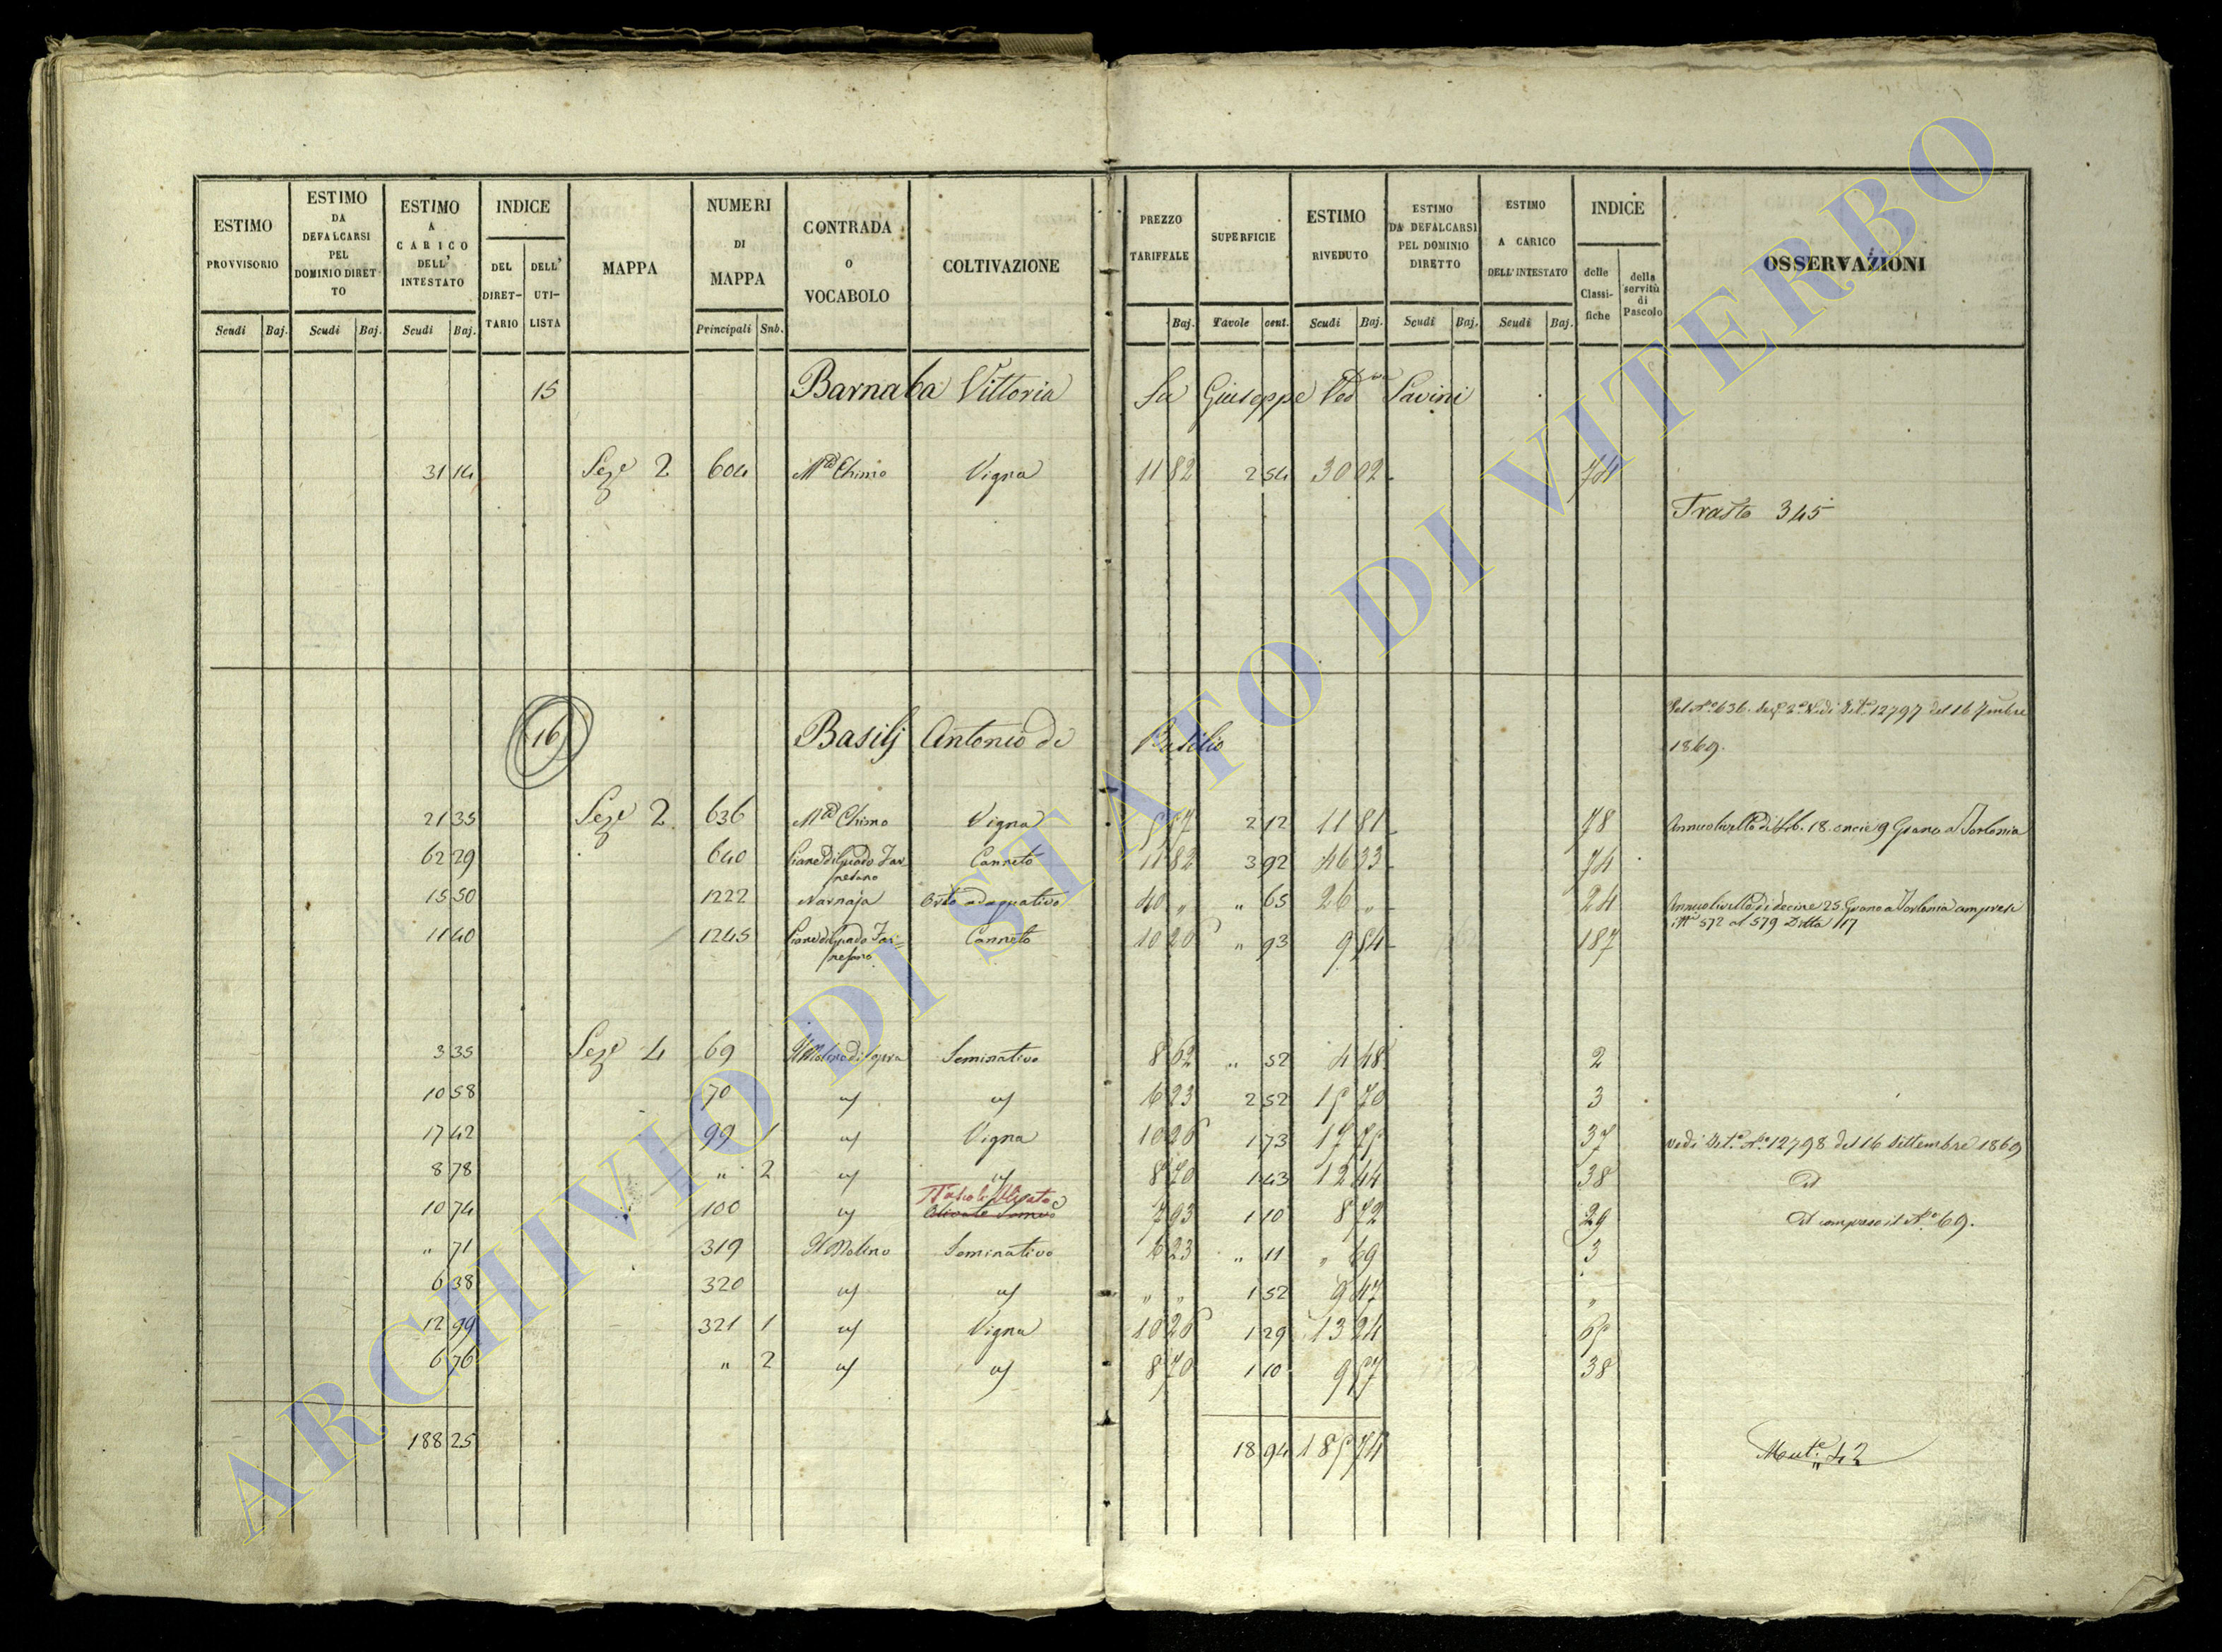 ESTIMO PROVVISORIO
ESTIMO DA DEFALCARSI PEL DOMINIO DIRETTO
ESTIMO A CARICO DELL' INTESTATO
INDICE DEL DIRETTARIO DELL' UTILISTA
MAPPA
NUMERI DI MAPPA
CONTRADA O VOCABOLO
COLTIVAZIONE
PREZZO TARIFFALE
SUPERFICIE
ESTIMO RIVEDUTO
ESTIMO DA DEFALCARSI PEL DOMINIO DIRETTO
ESTIMO A CARICO DELL' INTESTATO
INDICE delle Classifiche della servitù di Pascolo
OSSERVAZIONI
Scudi Baj. Scudi Baj. Scudi Baj. Principali Snb. Baj. Tavole cent. Scudi Baj. Scudi Baj. Scudi Baj.
15 Barnaba Vittoria fu Giuseppe Ved.va Savini
31 14 Seze 2 604 Mta Chimo Vigna 11 82 2 54 30 02 74
Trasto 345
16 Basilj Antonio di Basilio
12797 del 16 7mbre
1869.
21 35 Seze 2 636 Mta Chimo Vigna 5 57 2 12 11 81 78 Annuo livello di Lib. 18. oncie 9 Grano a Torlonia
62 29 640 Piane di Guado Far Canneto 11 82 3 92 46 33 74
nesano
15 50 1222 Narnaja Orto adaquativo 40 " " 65 26 " 24 Annuo livello di decine 25 Grano a Torlonia
572 al 579 Ditta 117
11 40 1245 Piane di Guado Far= Canneto 10 26 " 93 9 54 187
nesano
3 35 Seze 4 69 Il Molino di sopra Seminativo 8 62 " 52 4 48 2
10 58 70 6 23 2 52 15 70 3
17 42 99 1 Vigna 10 26 1 73 17 75 37 vedi Det.e N.o 12798 del 16 Settembre 1869
8 78 " 2 8 70 1 43 12 44 38 Id
10 74 100 7 93 1 10 8 72 29 Id compreso il N.o 69.
" 71 319 Il Molino Seminativo 6 23 " 11 " 69 3
6 38 320 " " 1 52 9 47 "
12 99 321 1 Vigna 10 26 1 29 13 24 65
6 76 " 2 8 70 1 10 9 57 38
188 25 18 94 185 74
42
ARCHIVIO DI STATO DI VITERBO